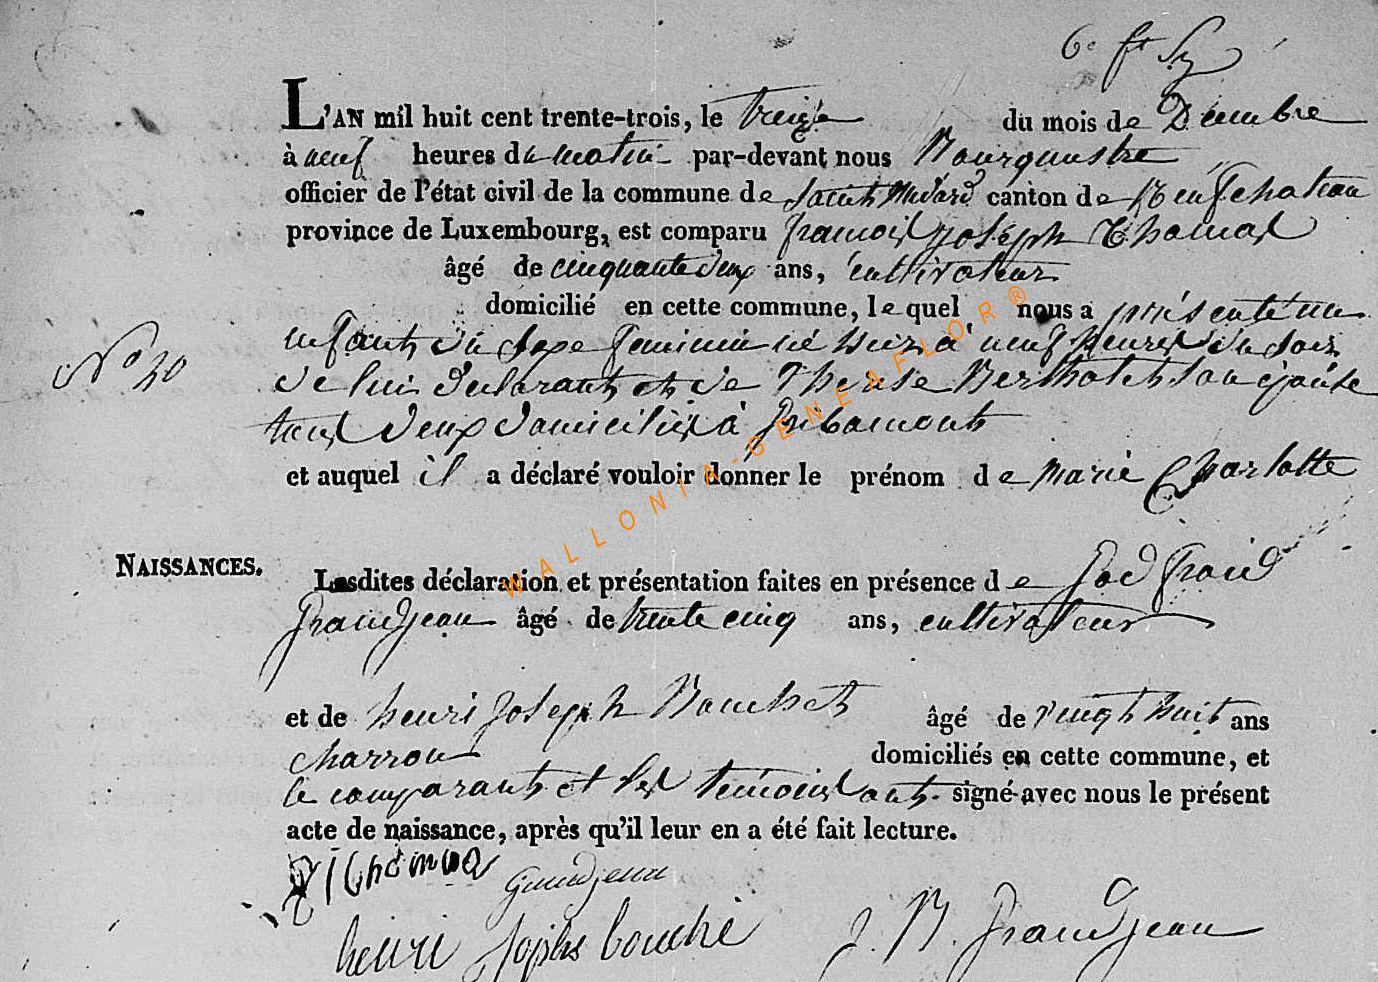 6e ft Sy
L'AN mil huit cent trente-trois, le treize du mois de Décembre
à neuf heures du matin par-devant nous Bourgmestre
officier de l'état civil de la commune de Saint Médard canton de Neufchateau
province de Luxembourg, est comparu francois joseph Thomas
âgé de cinquante deux ans, cultivateur
domicilié en cette commune, le quel nous a présenté un
enfant du sexe feminin né hier à neuf heures du soir
No 20
de lui déclarant et de Therese Bertholet son épouse
tous deux domiciliés à Gribamont
et auquel il a déclaré vouloir donner le prénom de Marie Charlotte
NAISSANCES.
Lesdites déclaration et présentation faites en présence de Godfroid
Grandjean âgé de trente cinq ans, cultivateur
et de henri joseph Bouchet âgé de vingt huit ans
charron domiciliés en cette commune, et
le comparant et les témoins ont signé avec nous le présent
acte de naissance, après qu'il leur en a été fait lecture.
Thomas Grandjean
henri josphs bouché J. N. Grandjean
WALLONIA-GENEAFLOR®